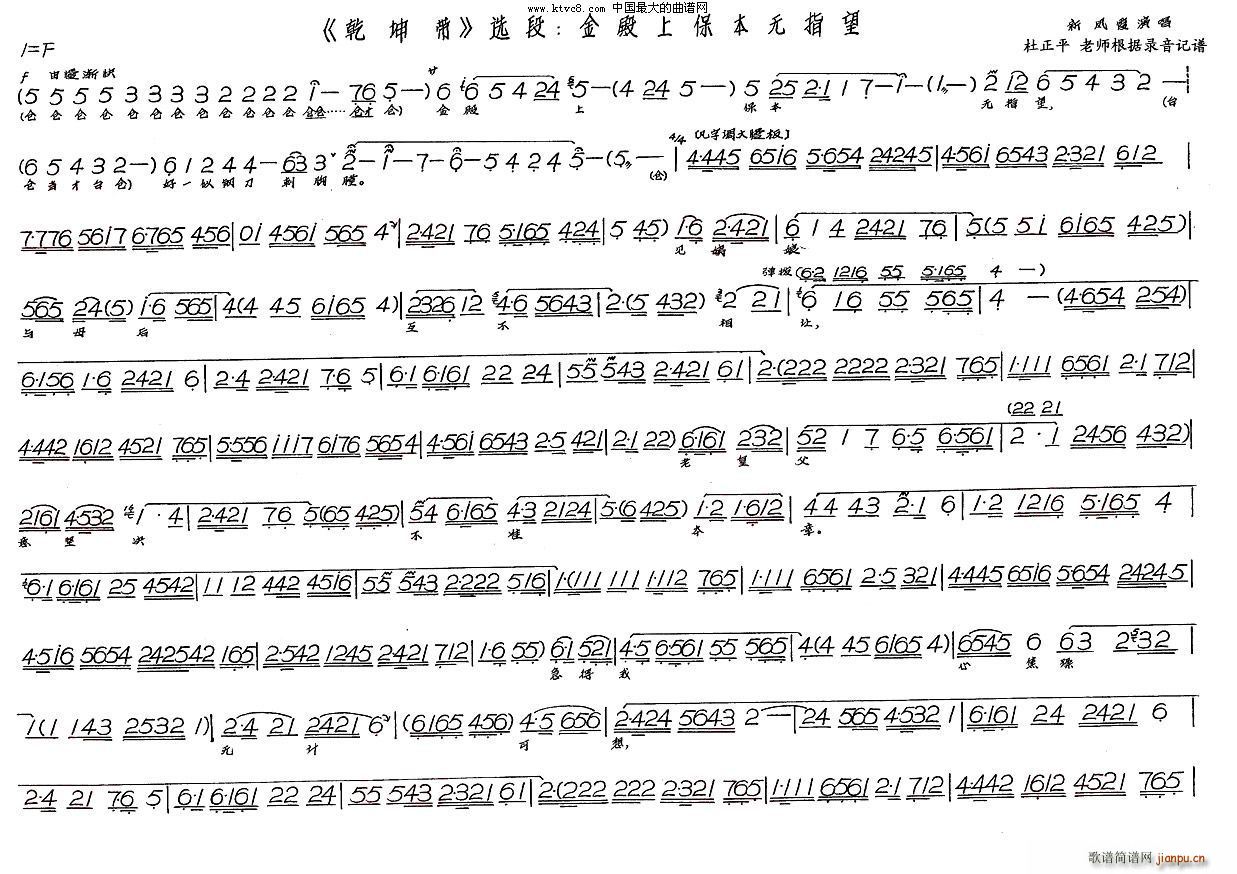 www.ktvc8.com 中国最大的曲谱网
《乾坤带》选段：金殿上保本无指望
新凤霞演唱
1=F
杜正平 老师根据录音记谱
f 由慢渐快
(5 5 5 5 3 3 3 3 2 2 2 2 i — 76 5 —) 6 6 5 4 24 5 — (4 24 5 —) 5 25 2·1 1 7 — 1 — (1, —) 2 12 6 5 4 3 2 —
(仓 仓 仓 仓 仓 仓 仓 仓 仓 仓 仓 仓 仓仓…… 仓才 仓) 金 殿 上 保 本 无指 望, (台
4/4 〔凡字调大慢板〕
(6 5 4 3 2 —) 6 1 2 4 4 — 63 3 2 — 1 — 7 — 6 — 5 4 2 4 5 — (5, —) | 4·445 6516 5·654 24245 | 4·561 6543 2·321 612 |
仓 当 才 台 仓) 好 一 似 钢 刀 刺 胸 膛。 (仓)
7·776 5617 6·765 456 | 0i 456i 565 4 | 2·421 76 5·165 424 | 5 45) 1·6 2·421 | 6 1 4 2421 76 | 5(5 5 i 6165 425) |
见 娘 娘
弹拨 (62 1216 55 5·165 4 —)
565 24(5) i·6 565 | 4(4 45 6165 4) | 2326 12 4·6 5643 | 2·(5 432) 2 21 | 6 16 55 565 | 4 — (4·654 254) |
与 母 后 互 不 相 让,
6·156 1·6 2421 6 | 2·4 2·421 7·6 5 | 6·1 6·161 22 24 | 55 543 2·421 61 | 2·(222 2222 2·321 765 | 1·111 6561 2·1 712 |
(22 21
4·442 1612 4521 765 | 5·556 1117 6176 5654 | 4·561 6543 2·5 421 | 2·1 22) 6·161 232 | 52 1 7 6·5 6·561 | 2·1 2456 432) |
老 望 父
2161 4·532 1·4 | 2·421 76 5(65 425) | 54 6·165 4·3 2124 | 5·(6 425) 1·2 1·612 | 44 43 2·1 6 | 1·2 1216 5·165 4 |
意 望 洪 不 准 本 章。
6·1 6·161 25 4542 | 11 12 442 4516 | 55 543 2·222 516 | 1·(111 111 1·112 765 | 1·111 6561 2·5 321 | 4·445 6516 5·654 2424·5 |
4·516 5654 242542 165 | 2·542 1245 2·421 712 | 1·6 55) 61 521 | 4·5 6·561 55 565 | 4(4 45 6165 4) | 6545 6 63 232 |
急 得 我 心 焦 躁
1(1 143 2532 1) | 2·4 21 2421 6 | (6165 456) 4·5 656 | 2·424 5643 2 — | 24 565 4·532 1 | 6·161 24 2421 6
无 计 可 想,
2·4 21 76 5 | 6·1 6·161 22 24 | 55 543 2·321 61 | 2·(222 222 2·321 765 | 1·111 6561 2·1 712 | 4·442 1612 4521 765 |
歌谱简谱网 jianpu.cn